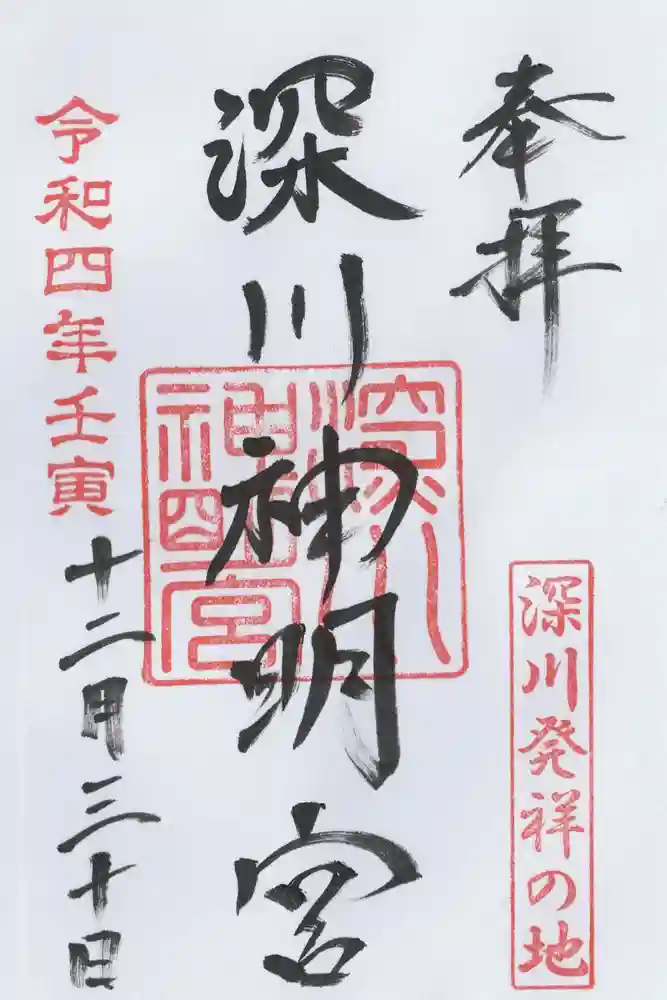 奉拝
深川発祥の地
深川神明宮
深川神明宮
令和四年壬寅
十二月三十日